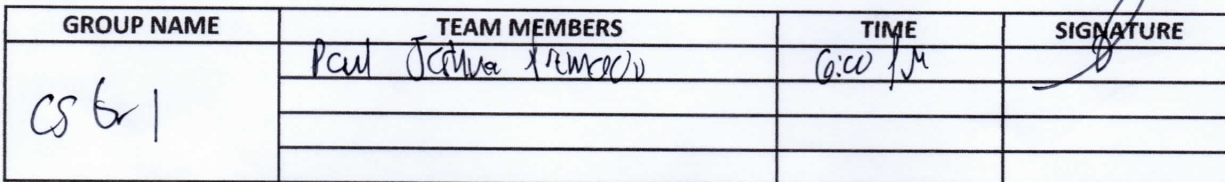 GROUP NAME TEAM MEMBERS TIME SIGNATURE
Paul Joshua
CS Gr 1